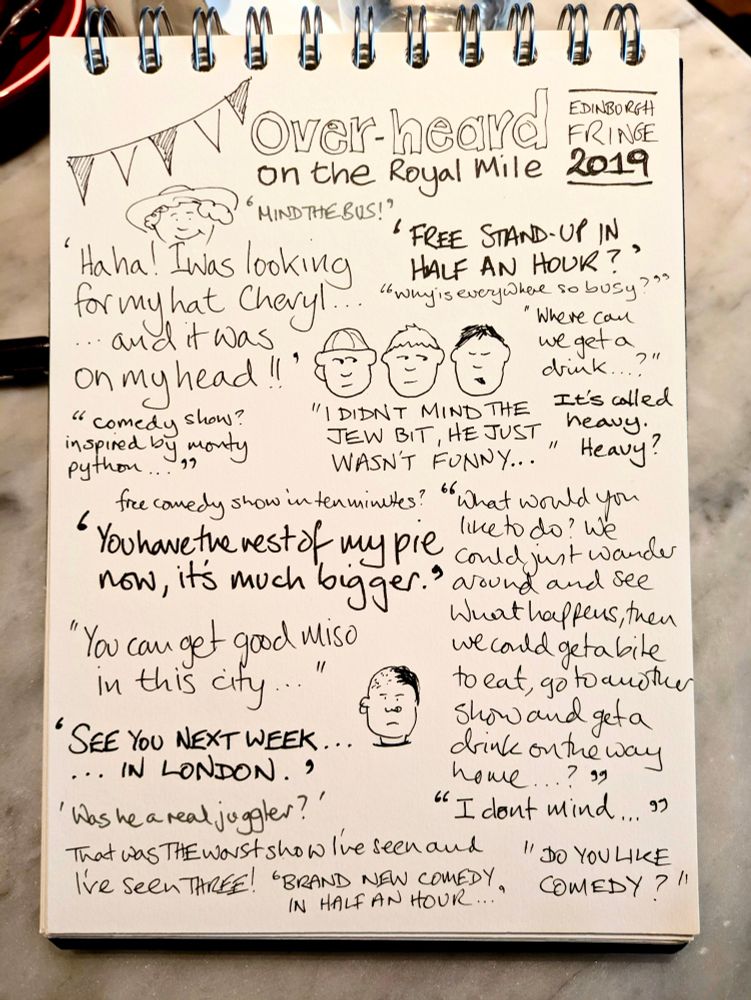 over-heard
on the Royal Mile
EDINBURGH
FRINGE
2019
'MIND THE BUS!'
'Haha! I was looking
for my hat Cheryl...
... and it was
on my head!!'
'FREE STAND-UP IN
HALF AN HOUR?'
"Why is everywhere so busy?"
"Where can
we get a
drink...?"
It's called
heavy.
Heavy?
"comedy show?
inspired by monty
python..."
"I DIDNT MIND THE
JEW BIT, HE JUST
WASN'T FUNNY..."
free comedy show in ten minutes?
'You have the rest of my pie
now, it's much bigger.'
"What would you
like to do? We
could just wander
around and see
what happens, then
we could get a bite
to eat, go to another
show and get a
drink on the way
home....?"
"I dont mind..."
"You can get good miso
in this city..."
'SEE YOU NEXT WEEK...
... IN LONDON.'
'Was he a real juggler?'
That was THE worst show I've seen and
I've seen THREE!
'BRAND NEW COMEDY,
IN HALF AN HOUR...
"DO YOU LIKE
COMEDY?"